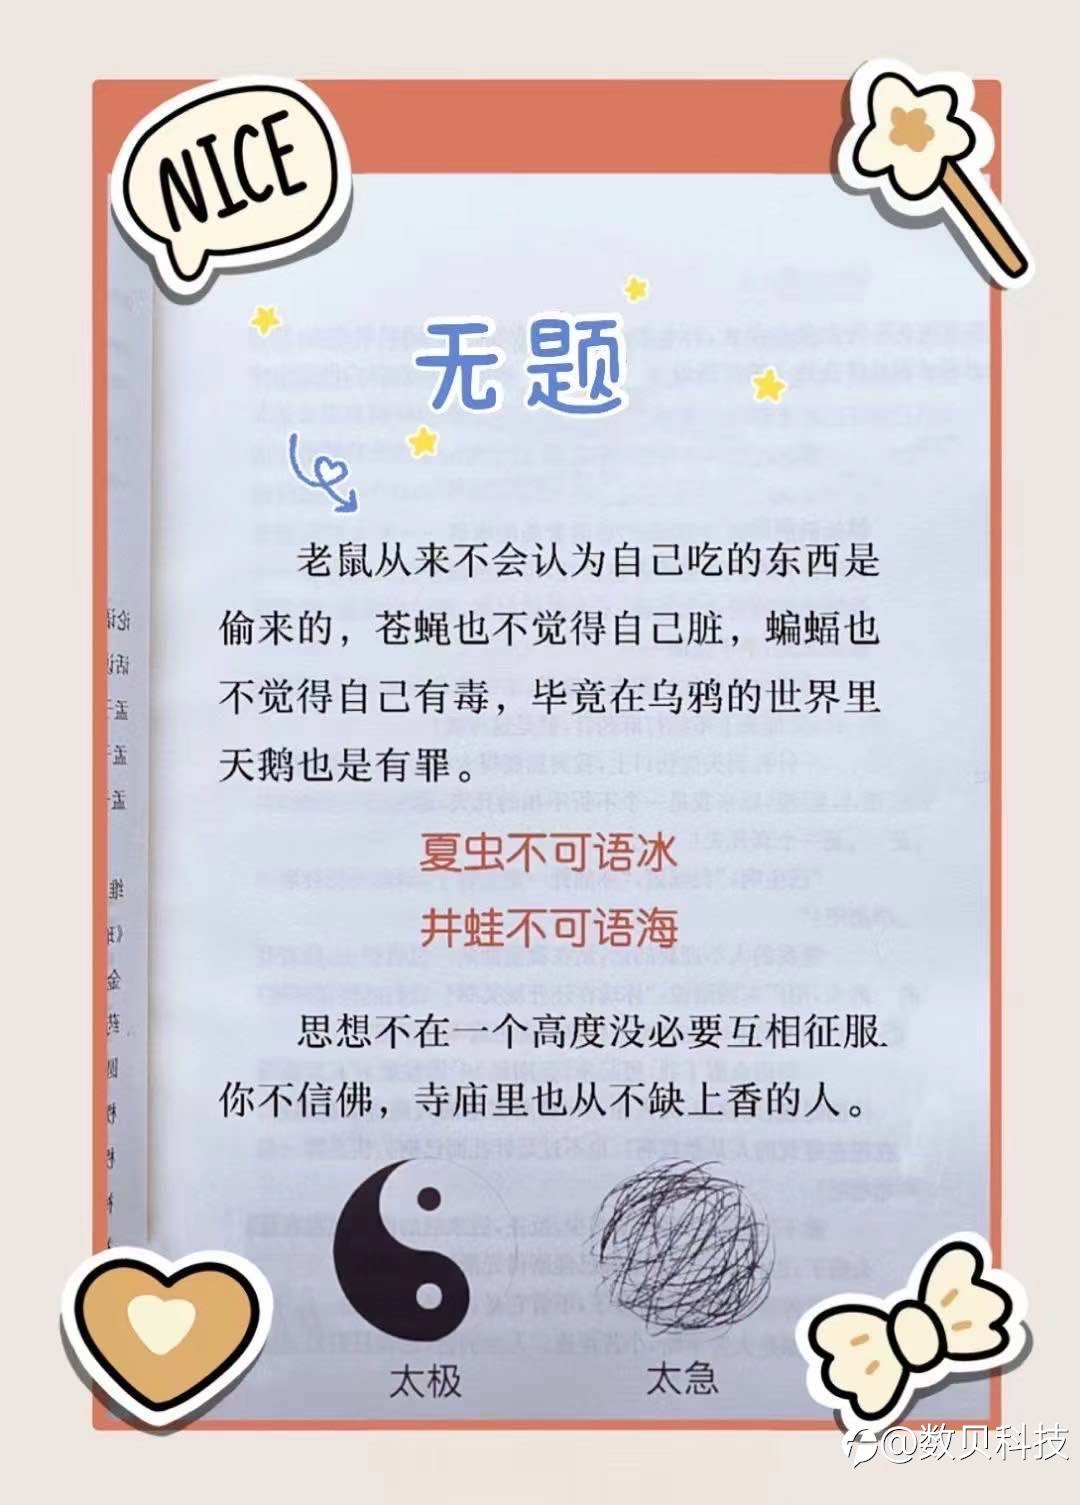 NICE
无题
老鼠从来不会认为自己吃的东西是
偷来的，苍蝇也不觉得自己脏，蝙蝠也
不觉得自己有毒，毕竟在乌鸦的世界里
天鹅也是有罪。
夏虫不可语冰
井蛙不可语海
思想不在一个高度没必要互相征服
你不信佛，寺庙里也从不缺上香的人。
太极
太急
@数贝科技